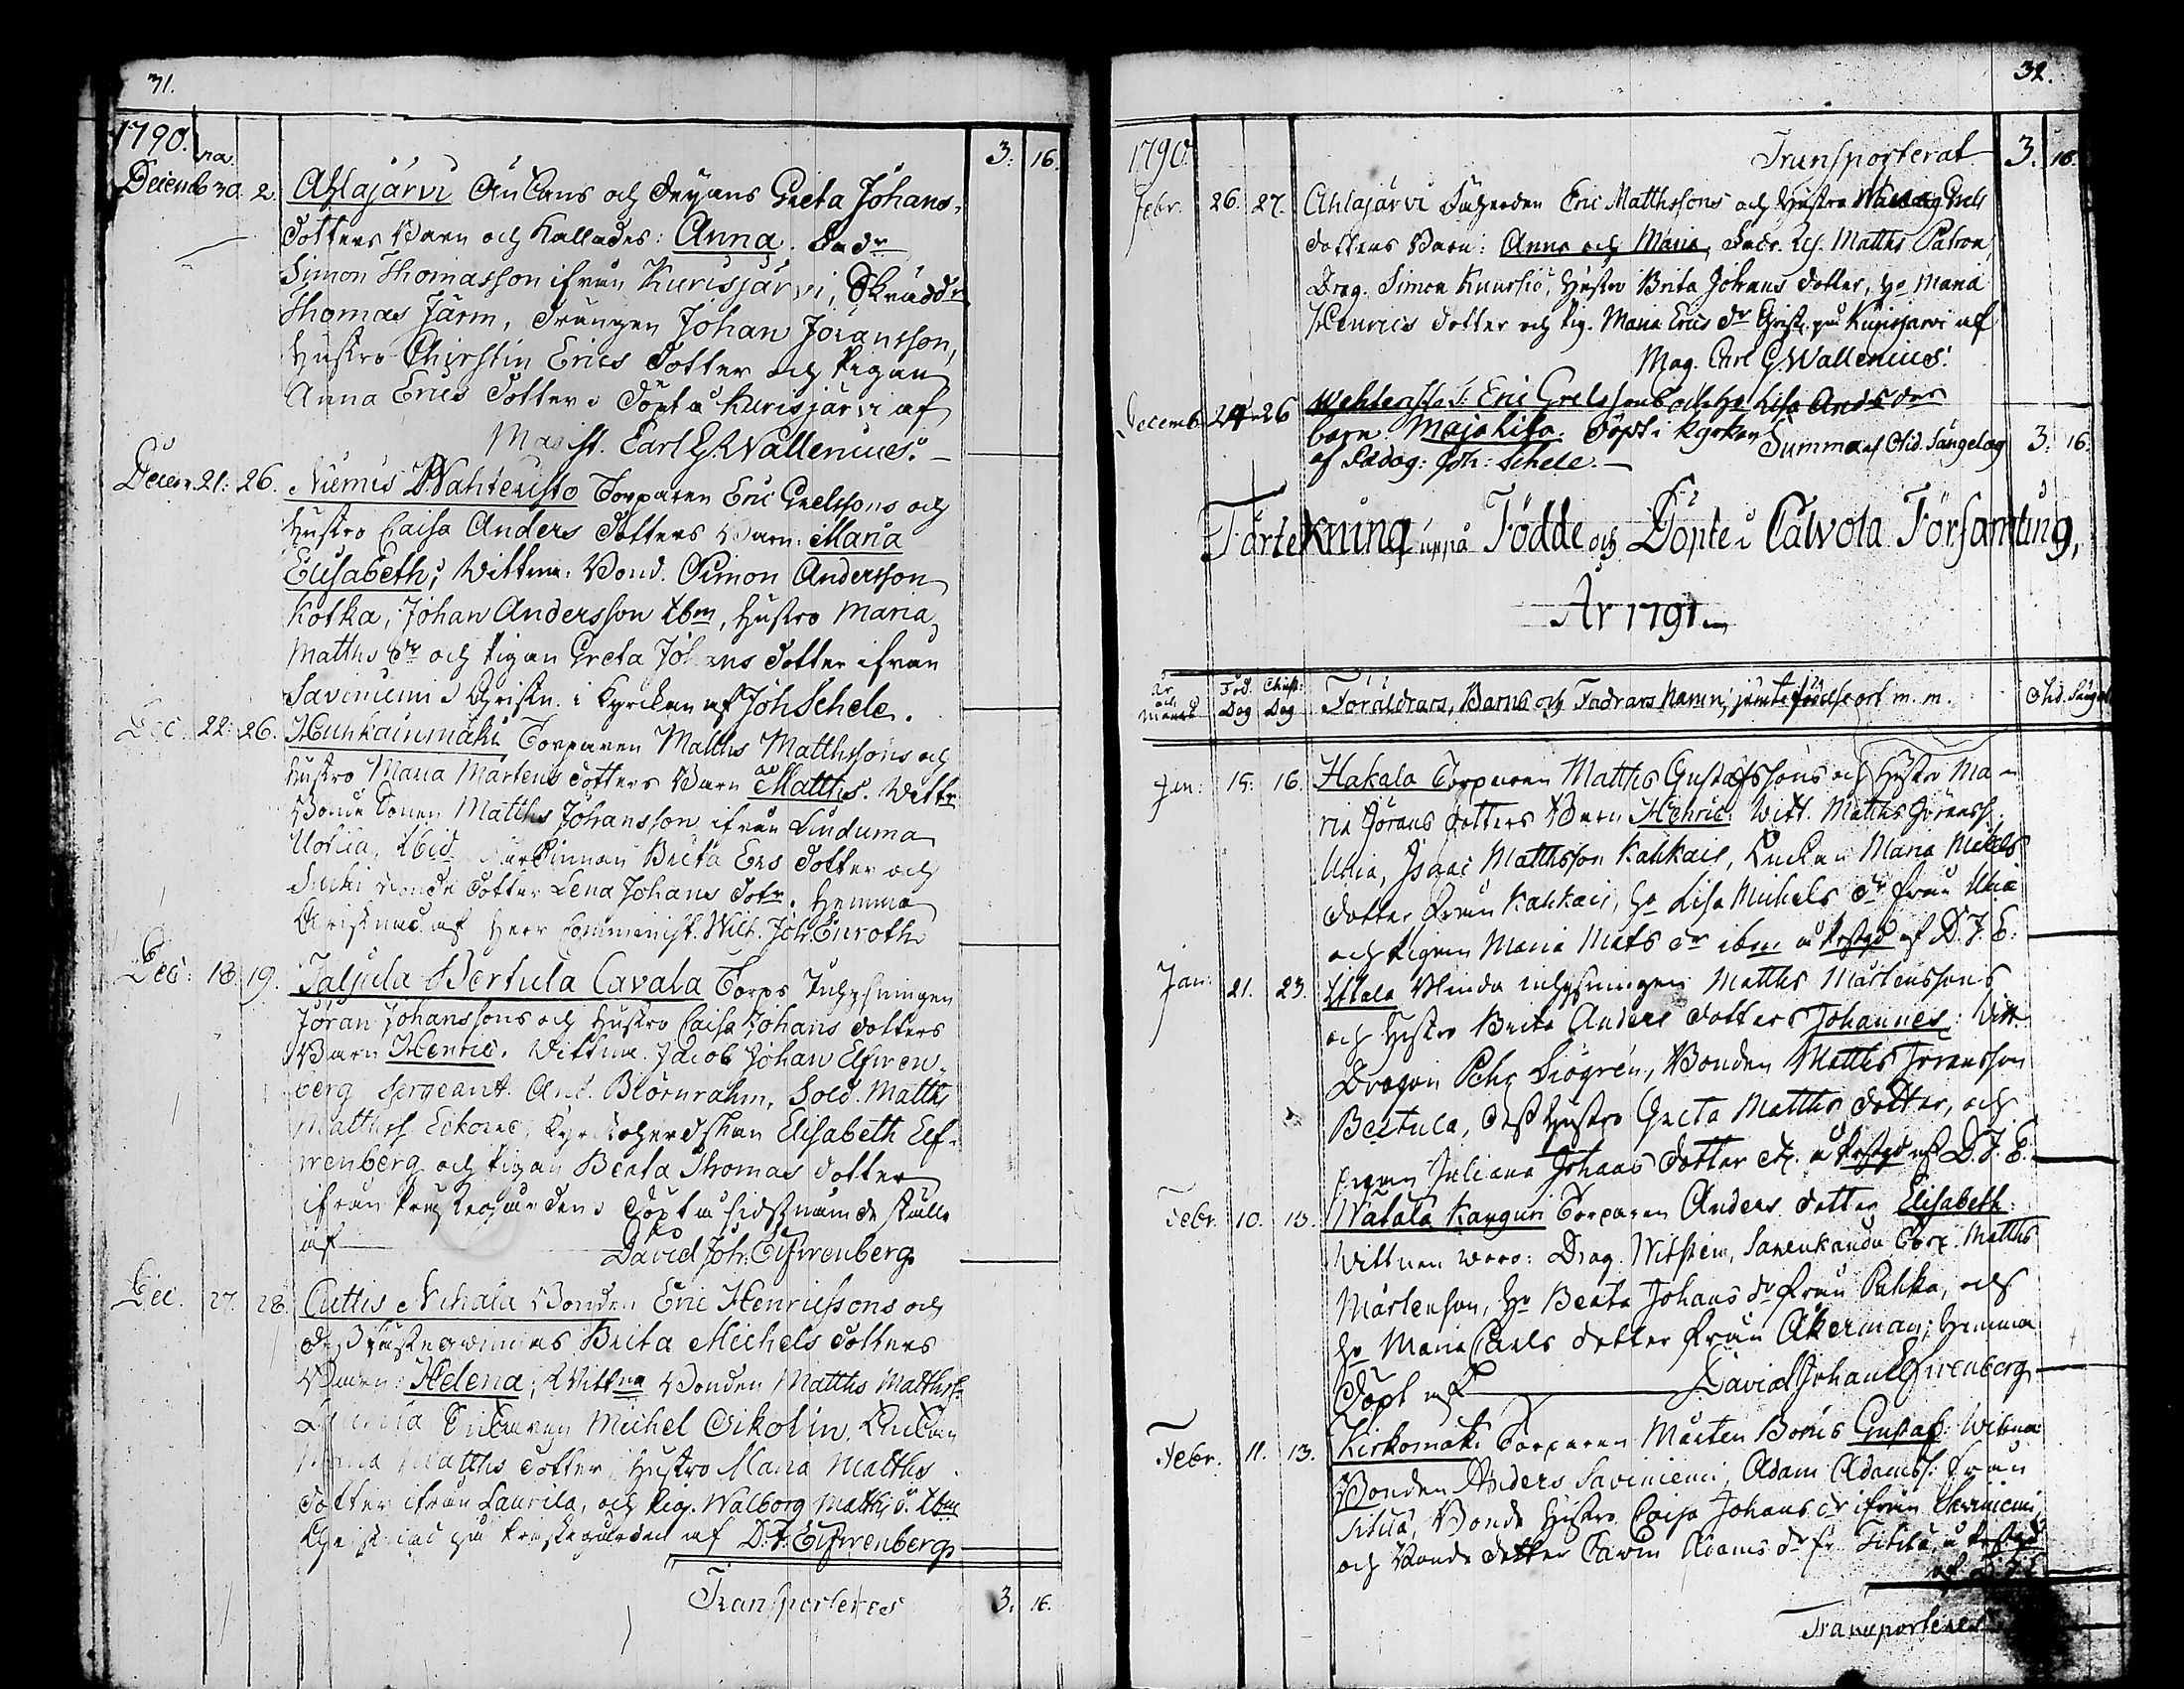 31.
1790.
3: 16.
Decemb 30. 2. Ahlajärvi Änkans och Deyans Greta Johans
dotters Barn och kallades: Anna. Fadr
Simon Thomasson ifrån Kurisjärvi, Skrädd
Thomas Järm, Drängen Johan Jöransson,
Hustro Chirstin Erics Dotter och Pigan
Anna Erics Dotter. Döpt å Kurisjärvi af
Magist. Carl G. Wallenius.
Decem. 21: 26. Niemis Wahteristo Torparen Eric Grelssons och
Hustro Caisa Anders Dotters Barn: Maria
Elisabeth; Wittna: Bond. Simon Andersson
Kotka, Johan Andersson Ibm, Hustro Maria
Matths dr och Pigan Greta Johans Dotter ifrån
Saviniemi. Christn. i Kyrckan af Joh Schele.
Dec. 22: 26. Huhkainmäki Torparen Matths Matthssons och
Hustro Maria Mårtens dotters Barn Matths. Wittn
Bonde Sonen Matths Johansson ifrån Linduma
Uotila, Ibid Brita Ers Dotter och
Bonde Dotter Lena Johans Dotr. Hemma
Christnad af Herr Comminist. Wilh. Joh. Enroth.
Dec: 18. 19. Taljala Bertula Cavala Torps Inhysningen
Jöran Johanssons och Hustro Caisa Johans dotters
Barn Henric. Wittna. Jacob Johan Elfwen-
berg Sergeant. And. Biörnrahm, Sold. Matths
Matthss Eckoned, Elisabeth Elf-
wenberg och Pigan Beata Thomas dotter
ifrån Prestegården. Döpt å sidstnämde ställe
af David Joh: Elfwenberg.
Dec. 27. 28. Cuttis Nihala Bonden Eric Henricssons och
dess Hustro Brita Michels dotters
Barn: Helena; Wittna Bonden Matths Matthss
Michel Ekolin, Enkan
Maria Matths dotter, Hustro Maria Matths
dotter ifrån Laurila, och Pig. Walborg Matths dr Ibm
Christnad på Prestegården af D. J. Elfwenberg
Transporteres 3. 16.
32.
1790.
Transporterat 3. 16.
Febr. 26. 27. Ahlajärvi Eric Matthssons och Hustro Grels
dotters Barn: Anna och Maria, Fadr. Matths Patron,
Drag. Simon Knursio, Hustro Brita Johans dotter, Ho Maria
Henrics dotter och Pig. Maria Erics dr Christ. på Kurisjärvi af
Mag. Carl G. Wallenius.
Decemb. 24 26 Wehteristo T: Eric Grelssons och Ho Lisa Ands dr
barn Maja Lisa. Döpt i Kyrkan
af Pädag: Joh: Schele.
Summa af Ohd. Sängelag 3: 16.
Förtekning uppå Födde och Döpte i Calvola Församling,
År 1791.
År och Månad
Föd. Dag
Christ: Dag
Föräldrars, Barns och Fadrars Namn, jämte födelse ort m. m.
Ohd. Sängel
Jan: 15. 16. Hakala Torparen Matths Gustafssons och Hustro Ma-
ria Jörans dotters Barn Henric. Witt. Matths Göranss.
Ulia, Isaac Matthsson Kahkais, Enckan Maria Mickels
dotter från Kahkais, Ho Lisa Michels dr från Ulia
och Pigan Maria Mats dr ibm å Prstgd af D. J. E:
Jan: 21. 23. Ittala Blinda inhysningen Matths Mårtenssons
och Hustro Brita Anders dotters Johannes: Witt.
Dragon Pehr Siögrén, Bonden Matths Jöransson
Bertula, dess Hustro Greta Matths dotter, och
Pigan Juliana Johans dotter å Prstgd af D. J. E:
Febr. 10. 13. Natala Kanguri Torparen Anders dotter Elisabeth:
Wittnen woro: Drag. Witsten, Torp. Matths
Mårtenson, Ho Beata Johans dr från Pahka, och
Ho Maria Carls dotter från Åkerman; Hemma
Döpt af David Johan Elfwenberg
Febr. 11. 13. Kirkomäki Torparen Mårten Boois Gustaf: Witna
Bonden Anders Saviniemi, Adam Adamss. från
Sitila, Bonde Hustro Caisa Johans dr ifrån Saviniemi
och Bonde dotter Carin Adams dr fr. Sitila, å Prstgd
af D. J. E.
Transporteres